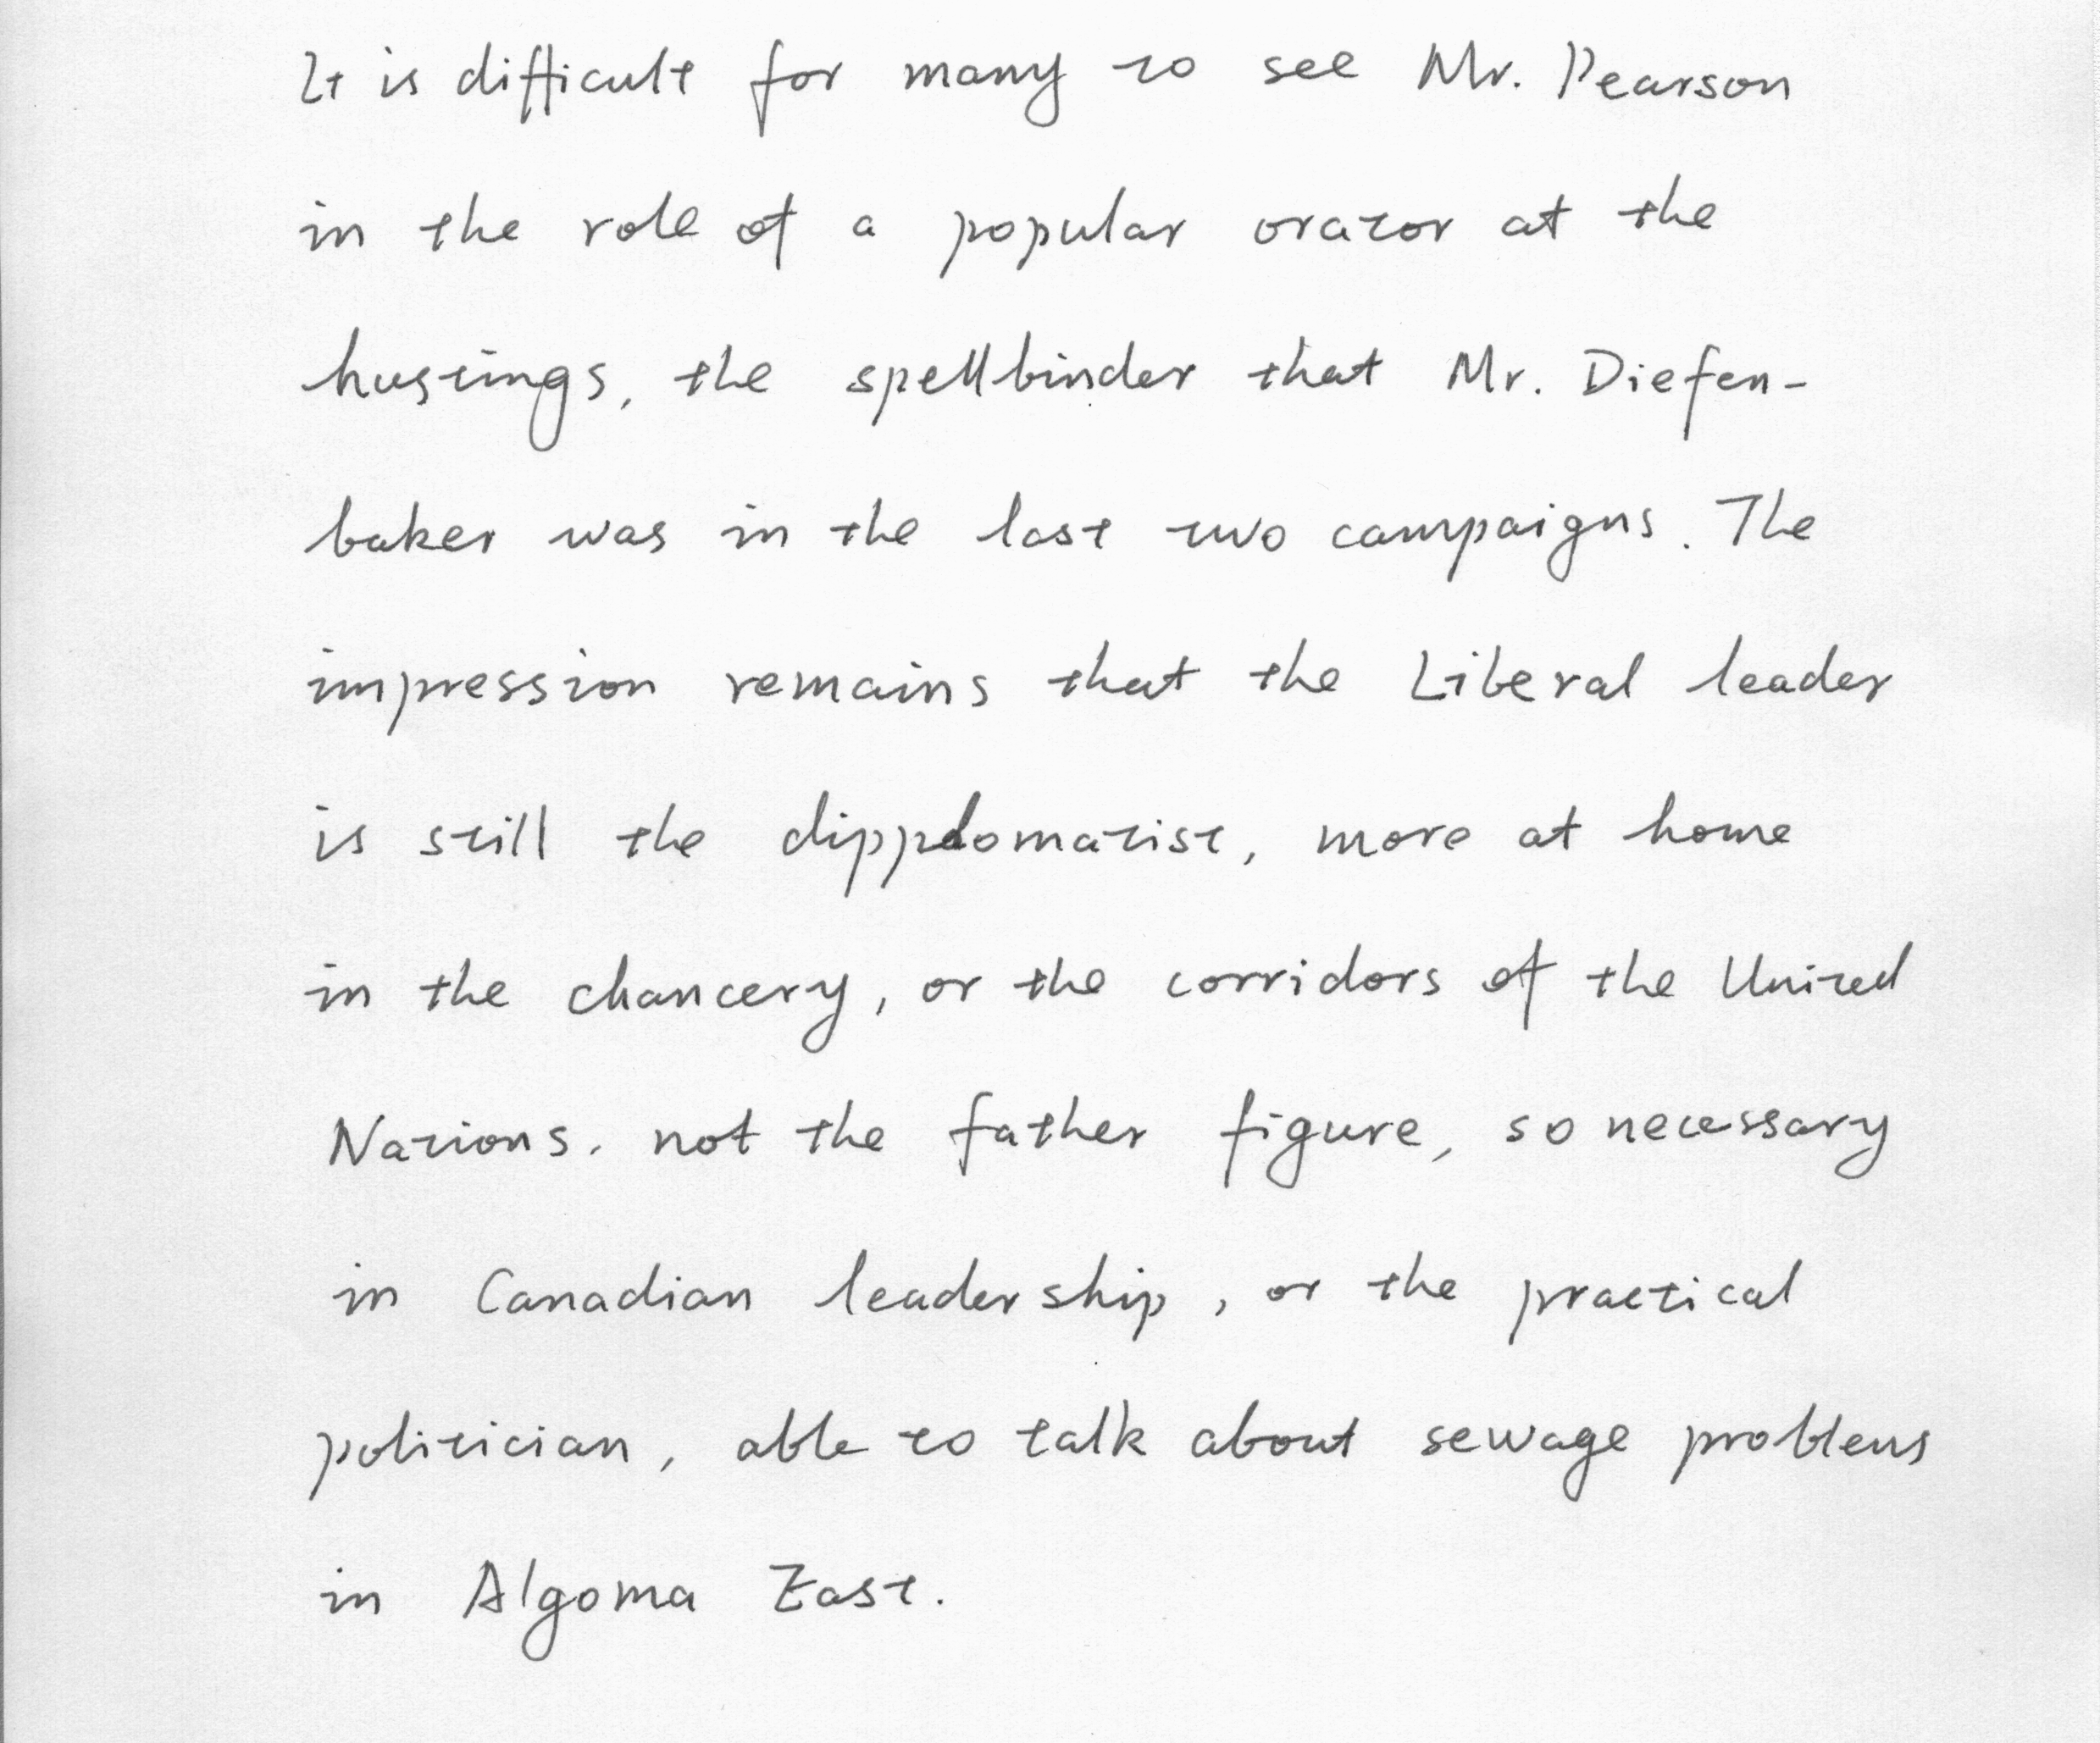 It is difficult for many to see Mr. Pearson
in the role of a popular orator at the
hustings, the spellbinder that Mr. Diefen-
baker was in the last two campaigns. The
impression remains that the Liberal leader
is still the dipplomatist, more at home
in the chancery, or the corridors of the United
Nations. not the father figure, so necessary
in Canadian leadership, or the practical
politician, able to talk about sewage problems
in Algoma East.